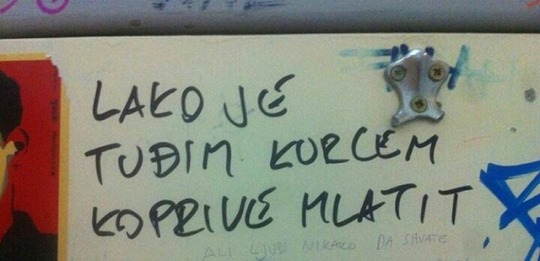 LAKO JE
TUĐIM KURCEM
KOPRIVE MLATIT
ALI LJUDI NIKAKO DA SHVATE